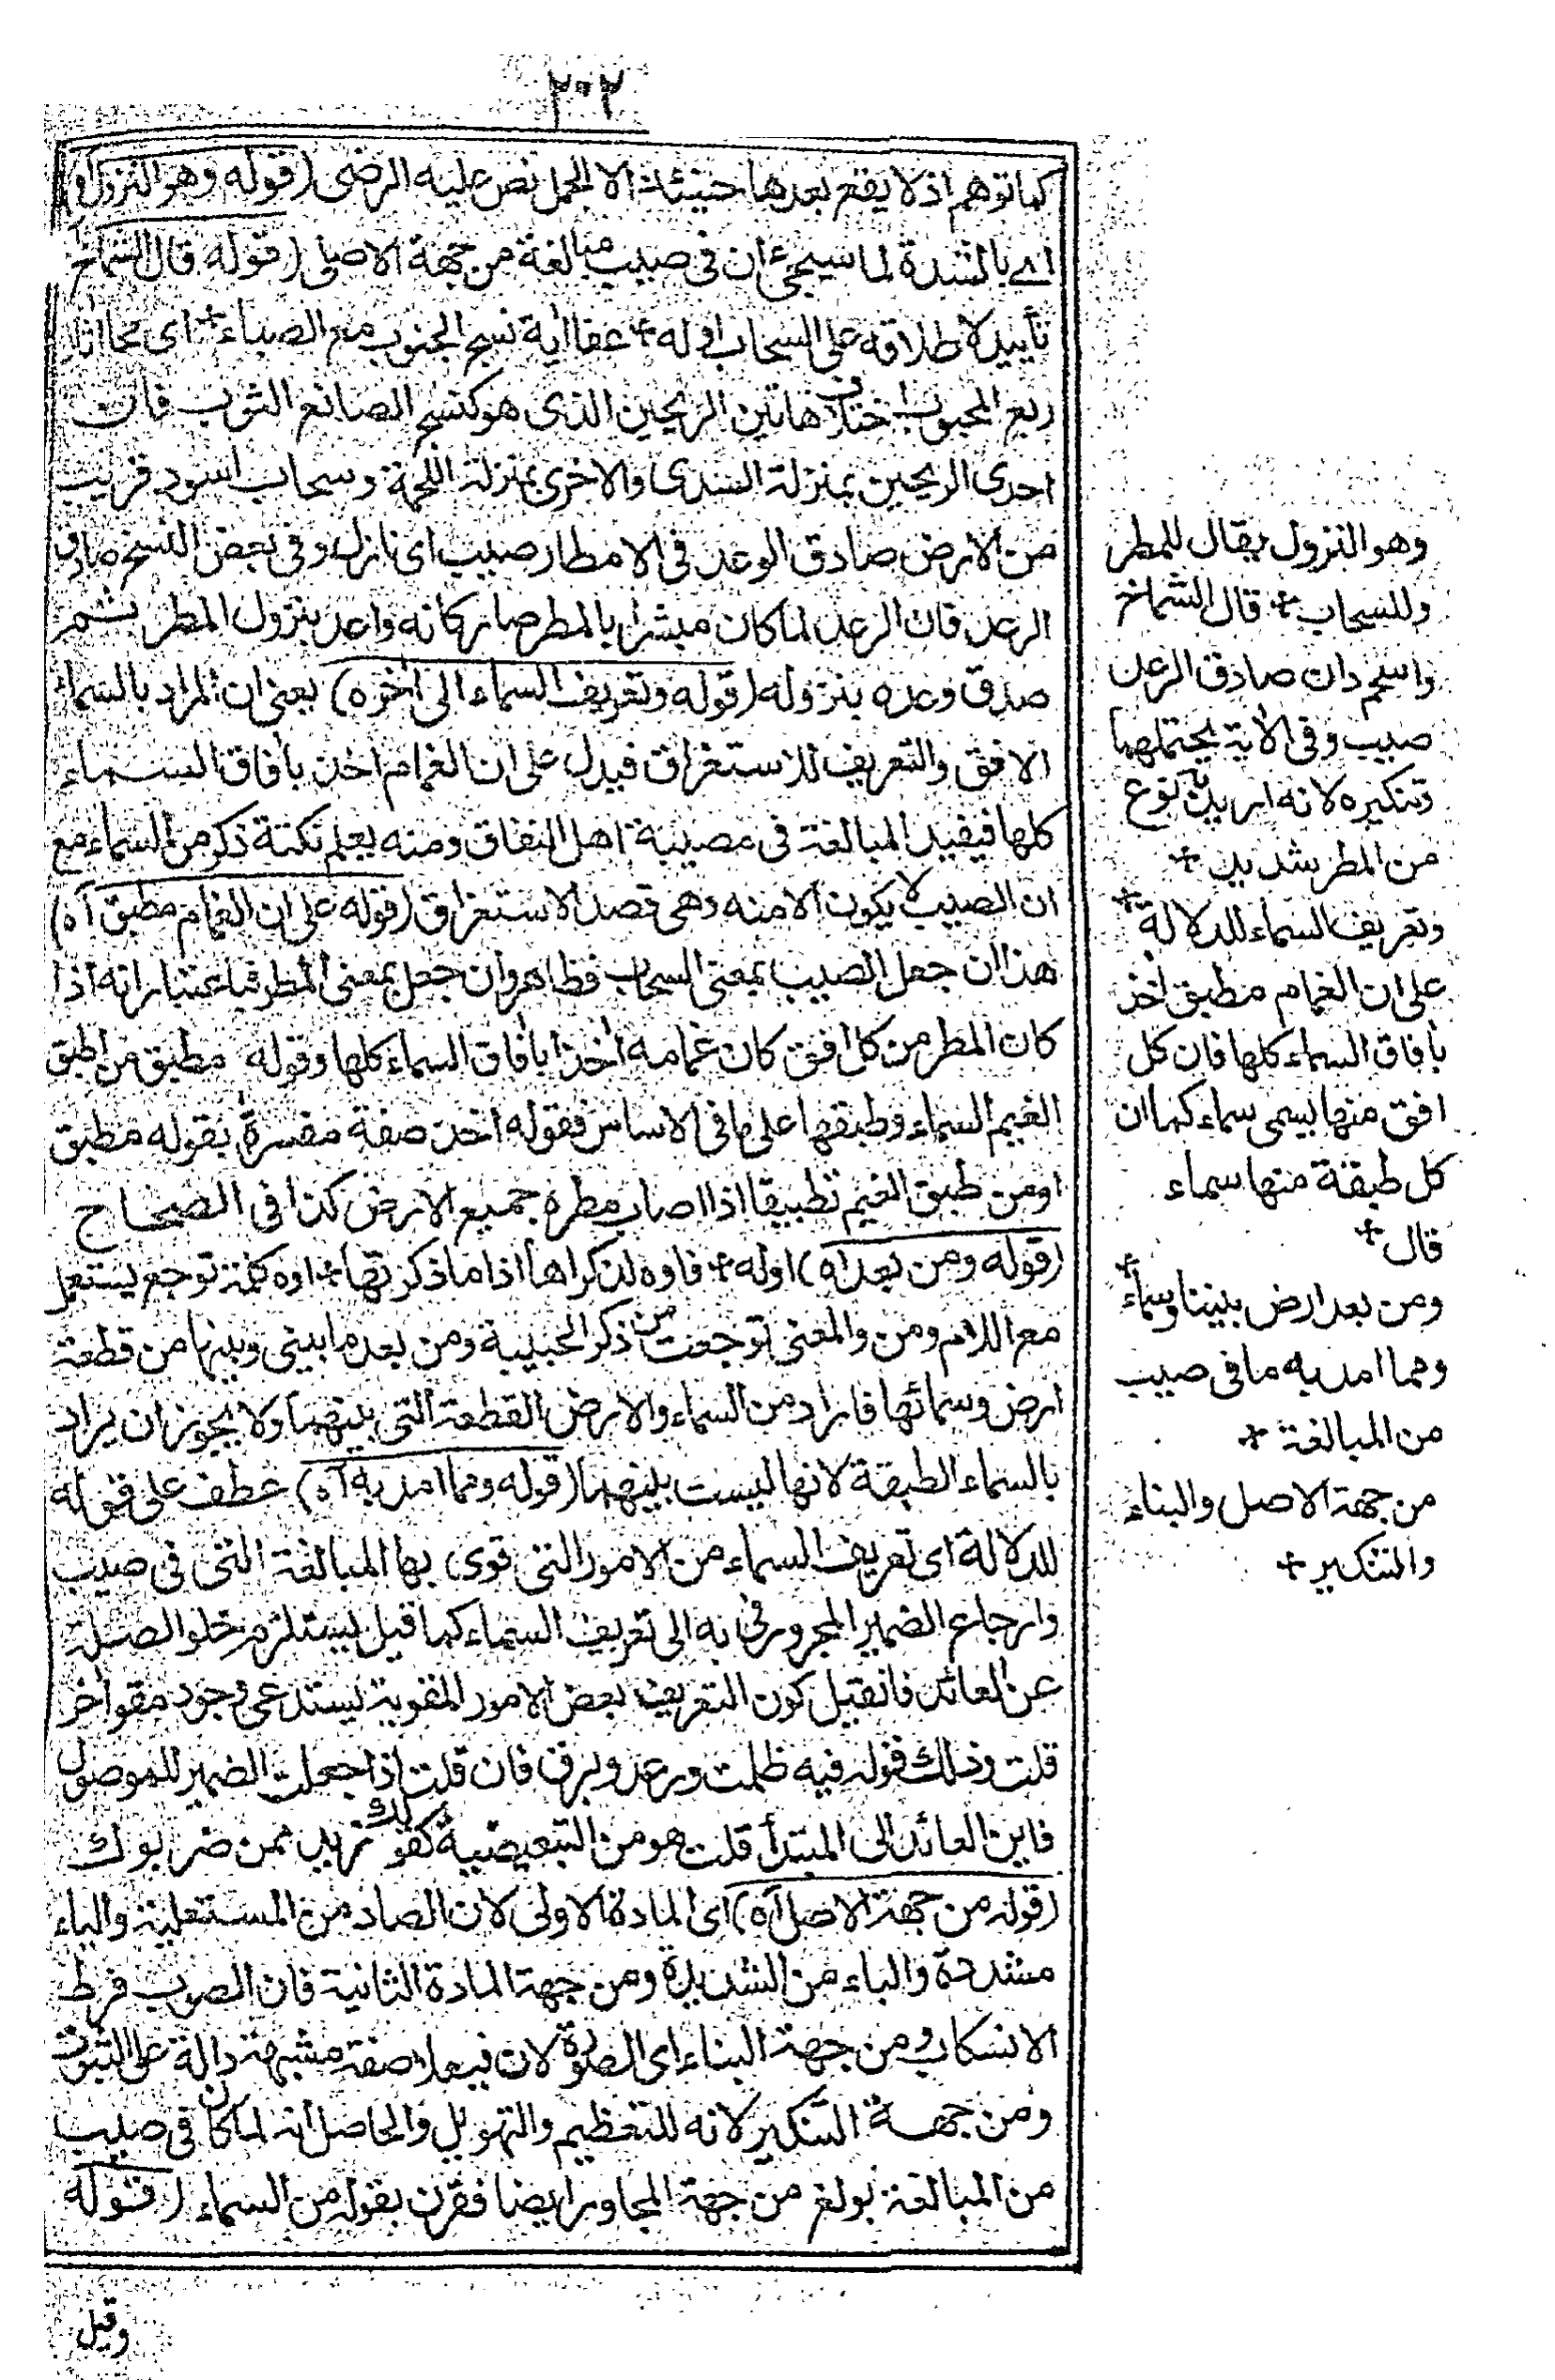 ٢٠٢
كما توهم اذ لا يقع بعدها حينئذ الا الجمل نص عليه الرضى (قوله وهو النزول اه)
اى بالشدة لما سيجئ ان فى صيب مبالغة من جهة الاصل (قوله قال الشماخ
تأييد لاطلاقه على السحاب اوله + عفا اية نسج الجنوب مع الصباء + اى محا اثار
ربع المحبوب اختلاف هاتين الريحين الذى هو كنسج الصانع الثوب فان
احدى الريحين بمنزلة السدى والاخرى بمنزلة اللحمة وسحاب اسود قريب
من الارض صادق الوعد فى الامطار صيب اى نازل وفى بعض النسخ صادق
الرعد فان الرعد لما كان مبشرا بالمطر صار كانه واعد بنزول المطر ثم
صدق وعده بنزوله (قوله وتعريف السماء الى اخره) يعنى ان المراد بالسماء
الافق والتعريف للاستغراق فيدل على ان الغمام اخذ بأفاق السماء
كلها فيفيد المبالغة فى مصيبة اهل النفاق ومنه يعلم نكتة ذكر من السماء مع
ان الصيب لا يكون الا منه وهى قصد الاستغراق (قوله على ان الغمام مطبق آه)
هذا ان جعل الصيب بمعنى السحاب فظاهر وان جعل بمعنى المطر فباعتبار انه اذا
كان المطر من كل افق كان غمامه اخذا بأفاق السماء كلها وقوله مطبق من اطبق
الغيم السماء وطبقها على ما فى الاساس فقوله اخذ صفة مفسرة بقوله مطبق
او من طبق الغيم تطبيقا اذا اصاب مطره جميع الارض كذا فى الصحاح
(قوله ومن بعد اه) اوله + فاوه لذكراها اذا ما ذكرتها + اوه كلمة توجع يستعمل
مع اللام ومن والمعنى توجعت من ذكر الحبيبة ومن بعد ما بينى وبينها من قطعة
ارض وسمائها فاراد من السماء والارض القطعة التى بينهما ولا يجوز ان يراد
بالسماء الطبقة لانها ليست بينهما (قوله ومما امد به آه) عطف على قوله
للدلالة اى تعريف السماء من الامور التى قوى بها المبالغة التى فى صيب
وارجاع الضمير المجرور فى به الى تعريف السماء كما قيل يستلزم خلو الصلة
عن العائد فان قيل كون التعريف بعض الامور المقوية يستدعى وجود مقو اخر
قلت وذلك قوله فيه ظلمت ورعد وبرق فان قلت اذا جعلت الضمير للموصول
فاين العائد الى المبتدأ قلت هو من التبعيضية كقولك زيد ممن ضربوك
(قوله من جهة الاصل آه) اى المادة الاولى لان الصاد من المستعلية والياء
مشددة والباء من الشديدة ومن جهة المادة الثانية فان الصوب فرط
الانسكاب ومن جهة البناء اى الصورة لان فيعلا صفة مشبهة دالة على الثبوت
ومن جهة التنكير لانه للتعظيم والتهويل والحاصل انه لما كان فى صيب
من المبالغة بولغ من جهة المجاور ايضا فقرن بقوله من السماء (قوله
وقيل
وهو النزول يقال للمطر
وللسحاب + قال الشماخ
واسحم دان صادق الرعد
صيب وفى الاية يحتملهما
وتنكيره لانه اريد به نوع
من المطر شديد +
وتعريف السماء للدلالة +
على ان الغمام مطبق اخذ
بأفاق السماء كلها فان كل
افق منها يسمى سماء كما ان
كل طبقة منها سماء
قال +
ومن بعد ارض بيننا وسماء +
ومما امد به ما فى صيب
من المبالغة +
من جهة الاصل والبناء
والتنكير +